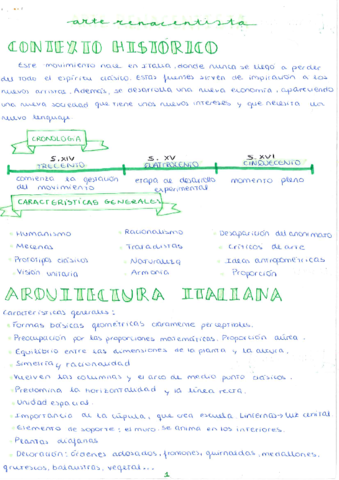 arte renacentista
CONTEXTO HISTÓRICO
Este movimiento nace en Italia, donde nunca se llegó a perder
del todo el espíritu clásico. Estas fuentes sirven de inspiración a los
nuevos artistas. Además, se desarrolla una nueva economía, apareciendo
una nueva sociedad que tiene unos nuevos intereses y que necesita un
nuevo lenguaje.
CRONOLOGÍA
S. XIV S. XV S. XVI
TRECENTO QUATTROCENTO CINQUECENTO
comienza la gestación etapa de desarrollo momento pleno
del movimiento experimental
CARACTERÍSTICAS GENERALES
Humanismo Racionalismo Desaparición del anonimato
Mecenas Tratadistas Críticos de arte
Prototipos clásicos Naturaleza Ideas antropométricas
Visión unitaria Armonía Proporción
ARQUITECTURA ITALIANA
Características generales:
Formas básicas geométricas claramente perceptibles.
Preocupación por las proporciones matemáticas. Proporción aúrea.
Equilibrio entre las dimensiones de la planta y la altura.
Simetría y racionalidad
Vuelven las columnas y el arco de medio punto clásicos.
Predomina la horizontalidad y la línea recta.
Unidad espacial.
Importancia de la cúpula, que usa linterna luz cenital.
Elemento de soporte: el muro se anima en los interiores.
Plantas diáfanas
Decoración: Órdenes adosados, frontones, guirnaldas, medallones,
grutescos, balaustres, vegetal...
1